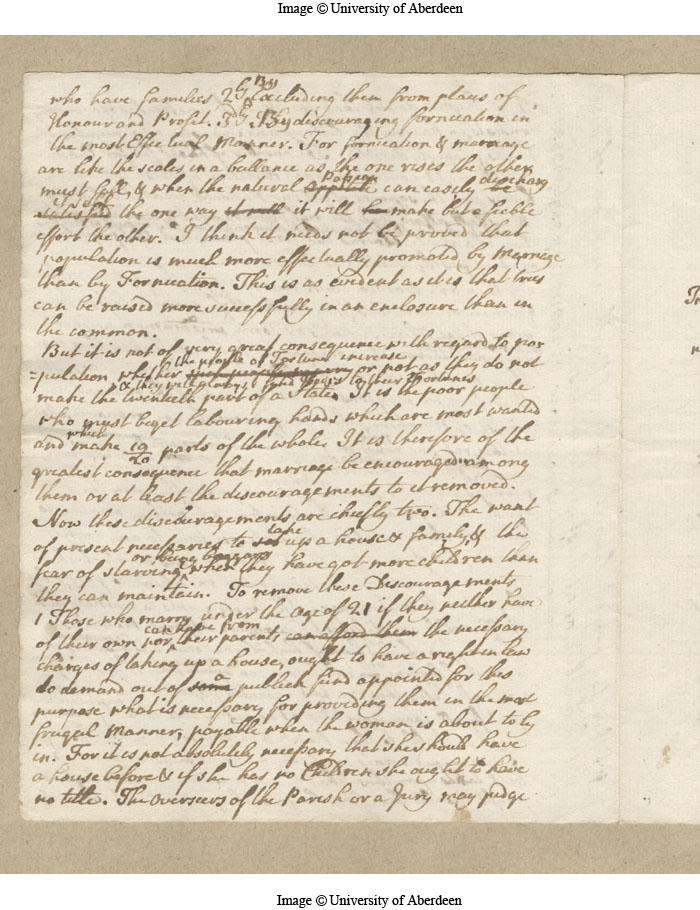 Image © University of Aberdeen
who have families 2ly By Excluding them from places of
Honour and Profit. 3dly By discouraging fornication in
the most Effectual Manner. For fornication & marriage
are like the scales in a ballance as the one rises the other
must fall, & when the natural appetite Passion can easily be discharg
satisfied the one way it will it will be make but a feeble
effort the other. I think it needs not be proved that
population is much more effectually promoted by Marriage
than by Fornication. This is as evident as it is that trees
can be raised more successfully in an enclosure than in
the common.
But it is not of very great consequence with regard to po
=pulation whether the people of Fortune increase or not as they do not
make the twentieth part of a State & they will always find their Fortunes It is the poor people
who must beget labouring hands which are most wanted
and which make 19/20 parts of the whole. It is therefore of the
greatest consequence that marriage be encouraged among
them or at least the discouragements to it removed.
Now these discouragements are chiefly two. The want
of present necessaries to set take up a house & family, & the
fear of starving or being beggars when they have got more children than
they can maintain. To remove these Discouragements
1 Those who marry under the age of 21 if they neither have
of their own nor can have from their parents can afford them the necessary
charges of taking up a house, ought to have a right in law
to demand out of some a publick fund appointed for this
purpose what is necessary for providing them in the most
frugal Manner, payable when the woman is about to ly
in. For it is not absolutely necessary that she should have
a house before & if she has no Children she ought to have
no title. The Overseers of the Parish or a Jury may judge
Image © University of Aberdeen